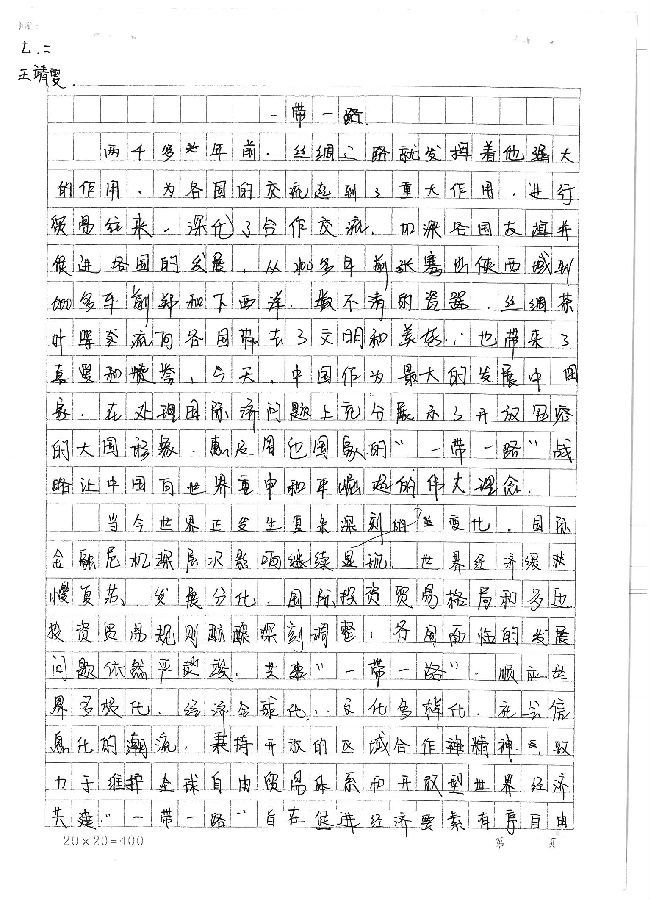 七.二
王靖雯.
一带一路.
两千多年前.丝绸之路就发挥着他强大
的作用、为各国的交流起到了重大作用.进行
贸易往来、深化了合作交流.加深各国友谊并
促进各国的发展.从2100多年前张骞出使西域到
600多年前郑和下西洋.数不清的瓷器.丝绸茶
叶 流向各国带去了文明和美好.也带来了
真 和赞誉.今天.中国作为最大的发展中国
家.在处理国际济问题上充分展示了开放 容
的大国形象.惠及周边国家的“一带一路”战
略让中国向世界重申和平崛起的伟大理念.
当今世界正发生复杂深刻的变化.国际
金融危机深层次影响继续显现 世界经济缓
慢复苏、发展分化.国际投资贸易格局和多边
投资贸易规则 深刻调整.各国面临的发展
问题依然严峻.共建“一带一路”.顺应世
界多极化、经济全球化、文化多样化、社会信
息化的潮流.秉持开放的区域合作精神 致
力于维护全球自由贸易体系和开放型世界经济
共建“一带一路”旨在促进经济要素有序自由
20×20=400 第 页